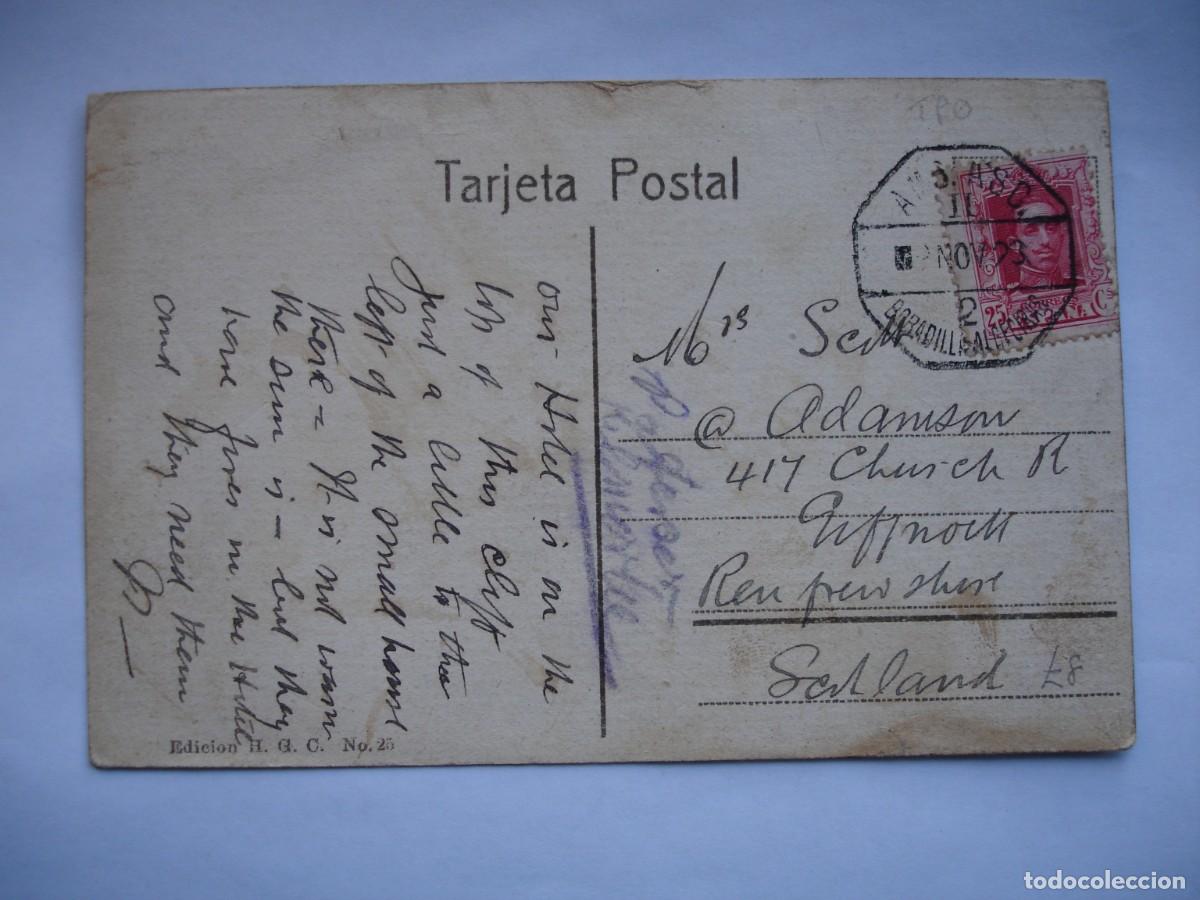 TPO
Tarjeta Postal
NOV 23
2
BOBADILLA ALGECIRAS
25 Cs
our Hotel is on the
top of this cliff
Just a little to the
left of the small house
there - It is not warm
the sun is - but they
have fires in the Hotel
and they need them
Mrs Scott
@ Adamson
417 Church R
Giffnock
Renfrewshire
Scotland
£8
Edicion H. G. C. No. 25
todocoleccion